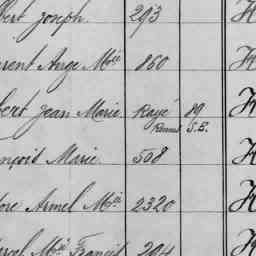 bert Joseph. 293
rent Ange Mie 860
bert Jean Marie Rayé 89
Rennes S.E.
nçois Marie 508
ore Armel Mie 2320
rcel Mie Francis 294